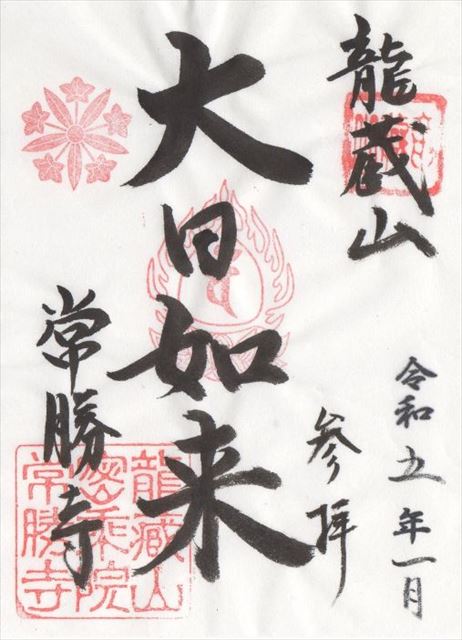 龍蔵山
令和五年一月
参拝
大日如来
常勝寺
龍蔵山
密乗院
常勝寺